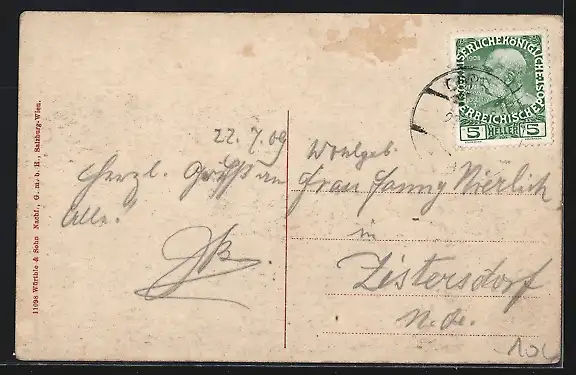 11098 Würthle & Sohn Nachf., G. m. b. H., Salzburg-Wien.
22. 7. 09
Herzl. Grüsse an
Alle!
KAISERLICHE KÖNIGLICHE ÖSTERREICHISCHE
1908
5 HELLER 5
Wohlgeb.
Frau Fanny Nierlich
in
Zistersdorf
N. Oe.